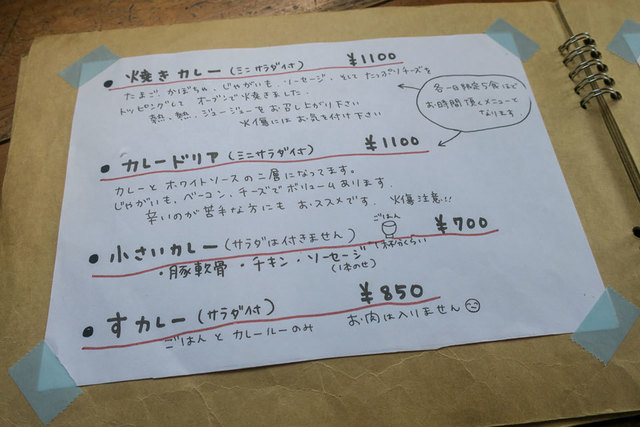 ● 焼きカレー (ミニサラダ付) ¥1100
たまご、かぼちゃ、じゃがいも、ソーセージ、そして たっぷりチーズを
トッピングして オーブンで焼きました。
熱、熱、ジュージューをお召し上がり下さい
火傷にはお気を付け下さい
各一日限定5食ほど
お時間頂くメニューと
なります
● カレードリア (ミニサラダ付) ¥1100
カレーとホワイトソースの二層になってます。
じゃがいも、ベーコン、チーズでボリュームあります。
辛いのが苦手な方にもおススメです. 火傷注意!!
● 小さいカレー (サラダは付きません) ¥700
ごはん
1杯分くらい
・豚軟骨・チキン・ソーセージ
(1本のせ)
● すカレー (サラダ付) ¥850
ごはんとカレールーのみ お肉は入りません